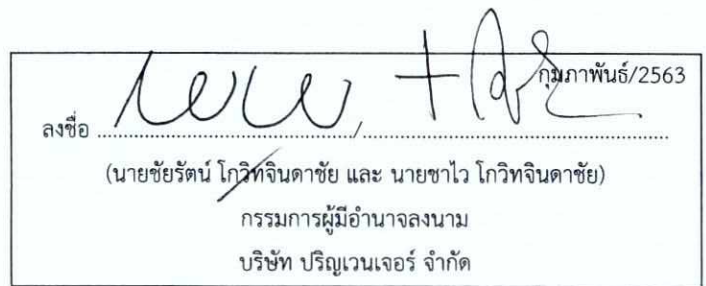 กุมภาพันธ์/2563
ลงชื่อ ........................................./.................................................
(นายชัยรัตน์ โกวิทจินดาชัย และ นายชาไว โกวิทจินดาชัย)
กรรมการผู้มีอำนาจลงนาม
บริษัท ปริญเวนเจอร์ จำกัด